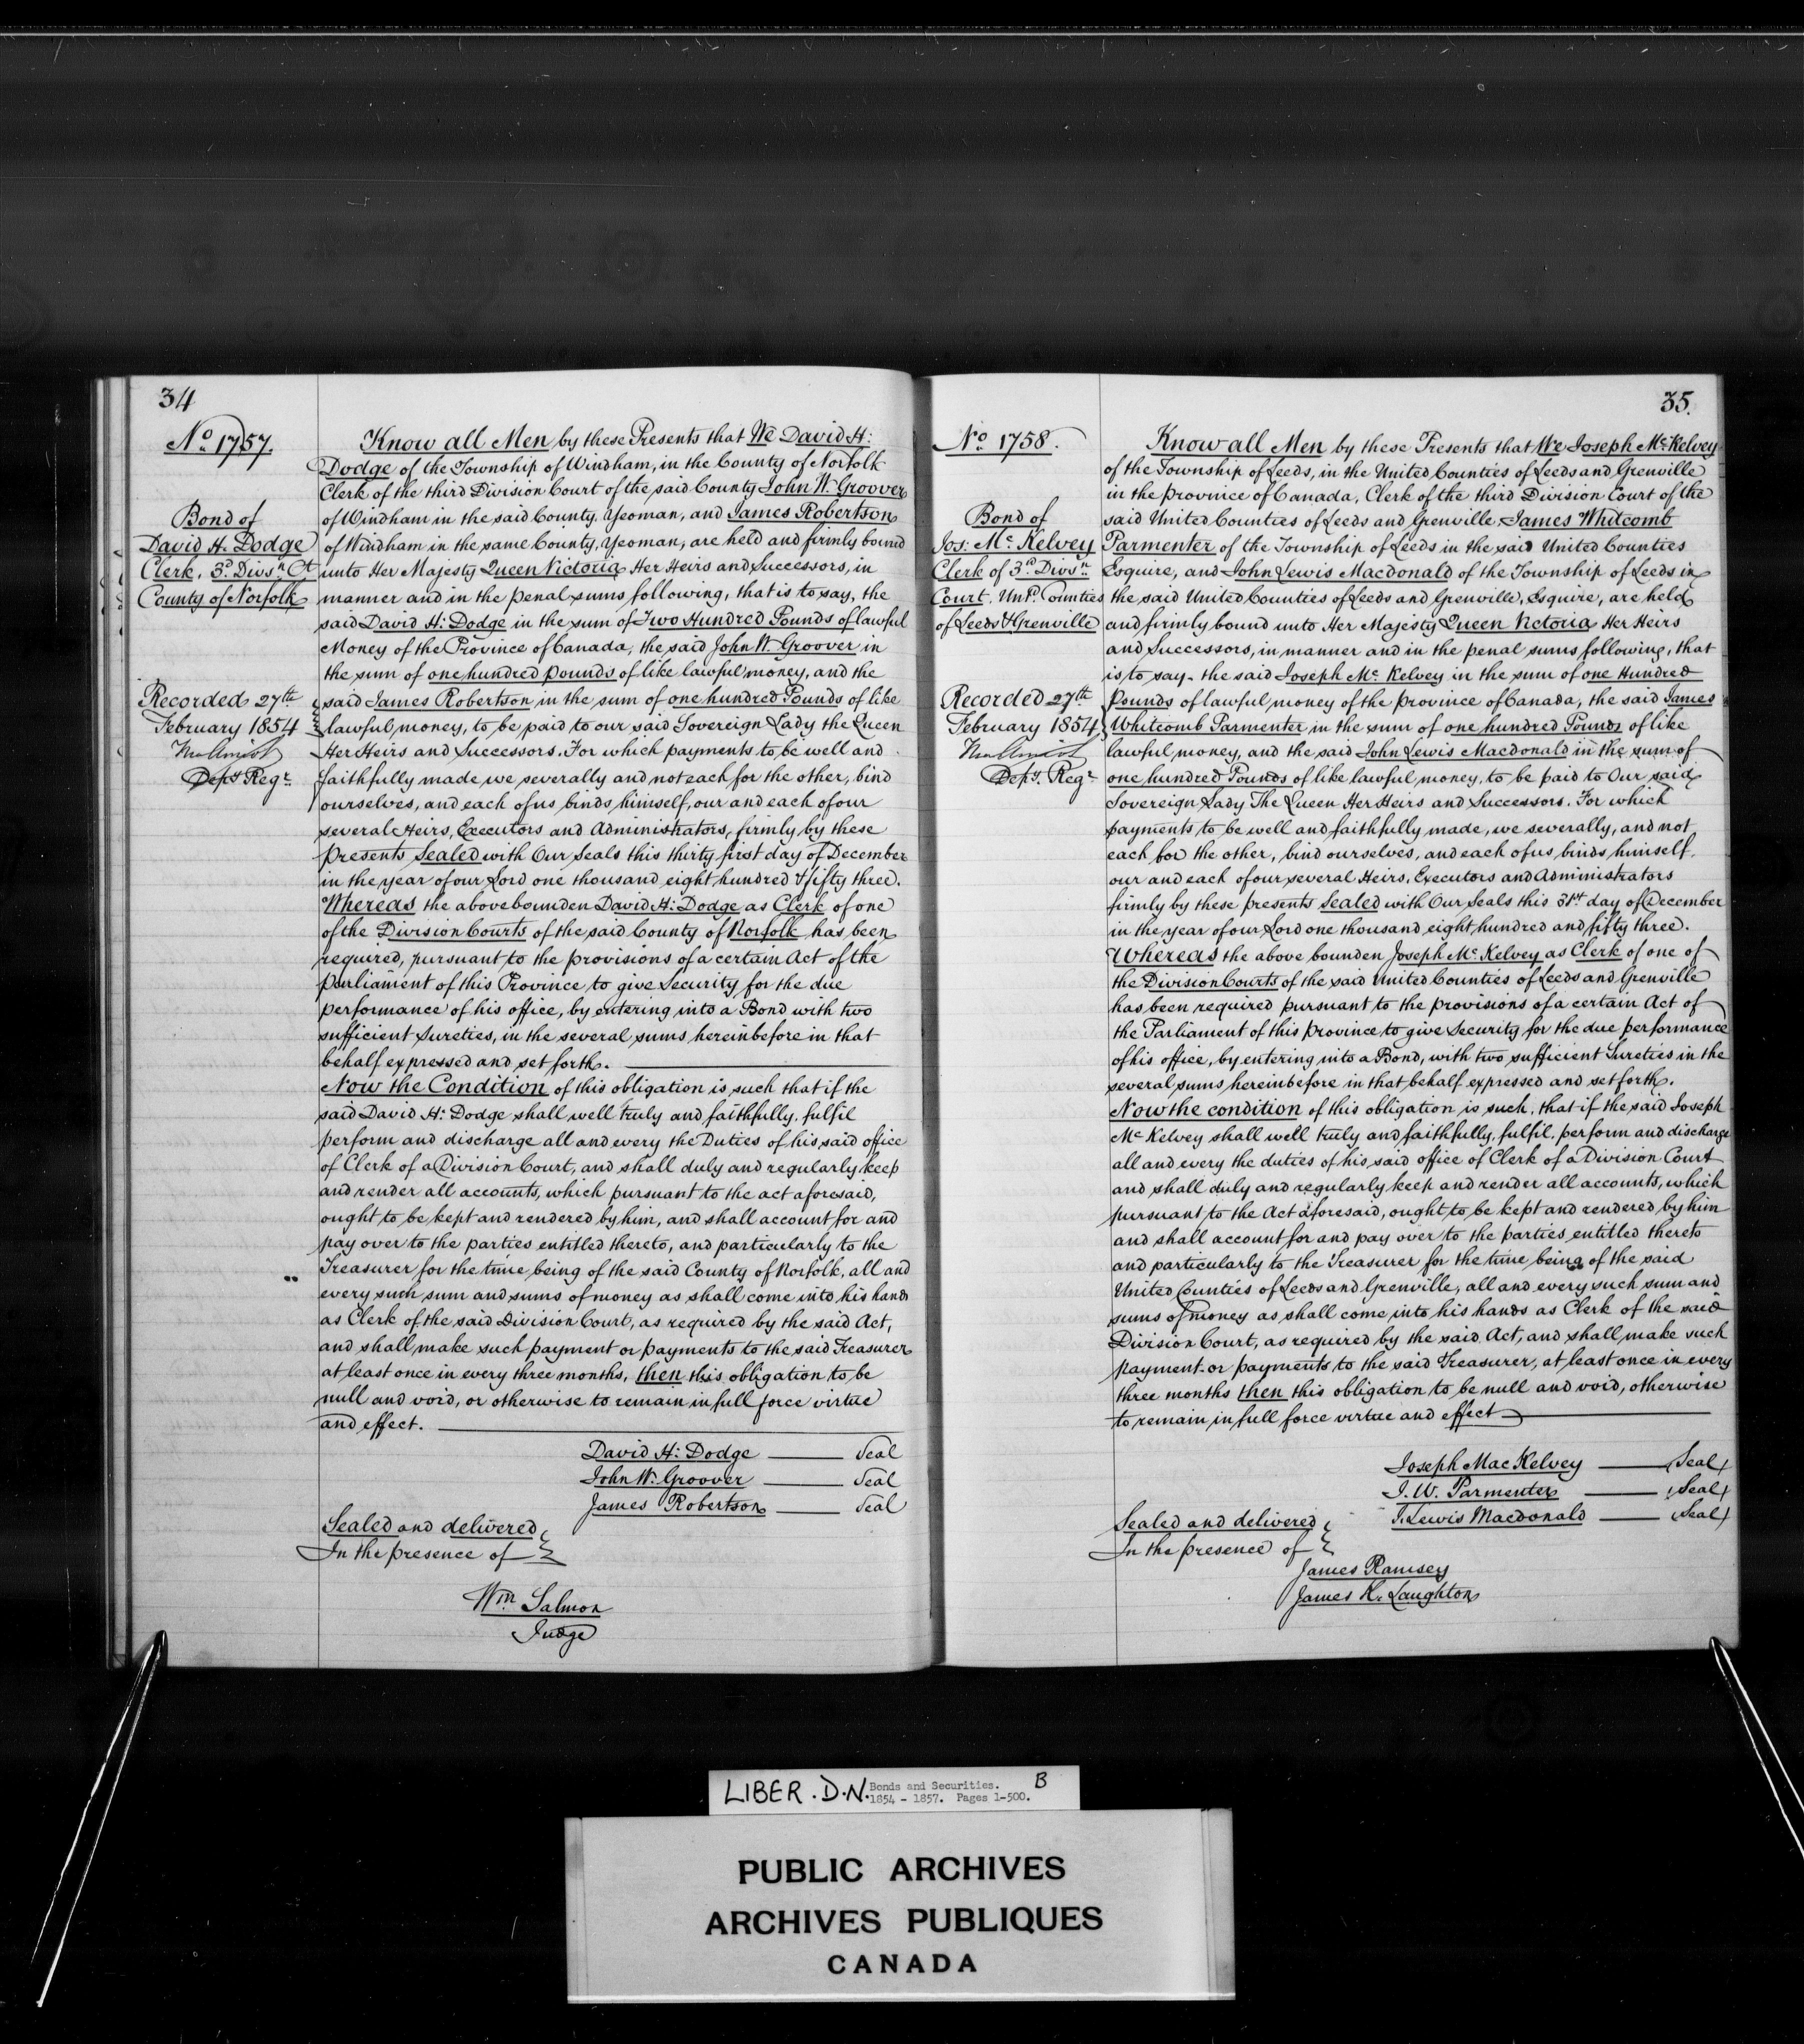 34
No 1757.
Bond of
David H. Dodge
Clerk, 3d Divsn Ct
County of Norfolk
Recorded 27th
February 1854
Depy Regr
Know all Men by these Presents that We David H:
Dodge of the Township of Windham, in the County of Norfolk
Clerk of the third Division Court of the said County John W. Groover
of Windham in the said County, Yeoman, and James Robertson
of Windham in the same County, Yeoman, are held and firmly bound
unto Her Majesty Queen Victoria Her Heirs and Successors, in
manner and in the penal sums following, that is to say, the
said David H: Dodge in the sum of Two Hundred Pounds of lawful
Money of the Province of Canada, the said John W. Groover in
the sum of one hundred pounds of like lawful money, and the
said James Robertson in the sum of one hundred Pounds of like
lawful money, to be paid to our said Sovereign Lady the Queen
Her Heirs and Successors. For which payments to be well and
faithfully made we severally and not each for the other, bind
ourselves, and each of us binds himself, our and each of our
several Heirs, Executors and Administrators, firmly by these
presents Sealed with Our Seals this thirty first day of December
in the year of our Lord one thousand eight hundred & fifty three.
Whereas the above bounden David H: Dodge as Clerk of one
of the Division Courts of the said County of Norfolk has been
required, pursuant to the provisions of a certain Act of the
parliament of this Province to give Security for the due
performance of his office, by entering into a Bond with two
sufficient Sureties, in the several sums hereinbefore in that
behalf expressed and set forth.
Now the Condition of this obligation is such that if the
said David H: Dodge shall well truly and faithfully, fulfil
perform and discharge all and every the Duties of his said office
of Clerk of a Division Court, and shall duly and regularly keep
and render all accounts, which pursuant to the act aforesaid,
ought to be kept and rendered by him, and shall account for and
pay over to the parties entitled thereto, and particularly to the
Treasurer for the time being of the said County of Norfolk, all and
every such sum and sums of money as shall come into his hands
as Clerk of the said Division Court, as required by the said Act,
and shall make such payment or payments to the said Treasurer
at least once in every three months, then this obligation to be
null and void, or otherwise to remain in full force virtue
and effect.
David H: Dodge Seal
John W. Groover Seal
James Robertson Seal
Sealed and delivered
In the presence of
Wm Salmon
Judge
35.
No 1758.
Bond of
Jos: Mc Kelvey
Clerk of 3d Divsn
Court. Untd. Counties
of Leeds & Grenville
Recorded 27th
February 1854
Depy. Regr
Know all Men by these Presents that We Joseph Mc Kelvey
of the Township of Leeds, in the United Counties of Leeds and Grenville
in the province of Canada, Clerk of the third Division Court of the
said United Counties of Leeds and Grenville, James Whitcomb
Parmenter of the Township of Leeds in the said United Counties
Esquire, and John Lewis Macdonald of the Township of Leeds in
the said United Counties of Leeds and Grenville, Esquire, are held
and firmly bound unto Her Majesty Queen Victoria Her Heirs
and Successors, in manner and in the penal sums following, that
is to say, the said Joseph Mc Kelvey in the sum of one Hundred
Pounds of lawful money of the province of Canada, the said James
Whitcomb Parmenter in the sum of one hundred Pounds of like
lawful money, and the said John Lewis Macdonald in the sum of
one hundred Pounds of like lawful money, to be paid to Our said
Sovereign Lady The Queen Her Heirs and Successors. For which
payments to be well and faithfully made, we severally, and not
each for the other, bind ourselves, and each of us binds himself.
our and each of our several Heirs, Executors and Administrators
firmly by these presents Sealed with Our Seals this 31st day of December
in the year of our Lord one thousand eight hundred and fifty three.
Whereas the above bounden Joseph Mc Kelvey as Clerk of one of
the Division Courts of the said United Counties of Leeds and Grenville
has been required pursuant to the provisions of a certain Act of
the Parliament of this province to give Security for the due performance
of his office, by entering into a Bond, with two sufficient Sureties in the
several sums hereinbefore in that behalf expressed and set forth.
Now the condition of this obligation is such, that if the said Joseph
Mc Kelvey shall well truly and faithfully, fulfil, perform and discharge
all and every the duties of his said office of Clerk of a Division Court
and shall duly and regularly keep and render all accounts, which
pursuant to the Act aforesaid, ought to be kept and rendered by him
and shall account for and pay over to the parties entitled thereto
and particularly to the Treasurer for the time being of the said
United Counties of Leeds and Grenville, all and every such sum and
sums of money as shall come into his hands as Clerk of the said
Division Court, as required by the said Act, and shall make such
payment or payments to the said Treasurer, at least once in every
three months then this obligation to be null and void, otherwise
to remain in full force virtue and effect
Joseph Mac Kelvey (Seal)
J. W. Parmenter (Seal)
J. Lewis Macdonald (Seal)
Sealed and delivered
In the presence of
James Ramsey
James K. Laughton
LIBER. D.N. Bonds and Securities. B
1854 - 1857. Pages 1-500.
PUBLIC ARCHIVES
ARCHIVES PUBLIQUES
CANADA